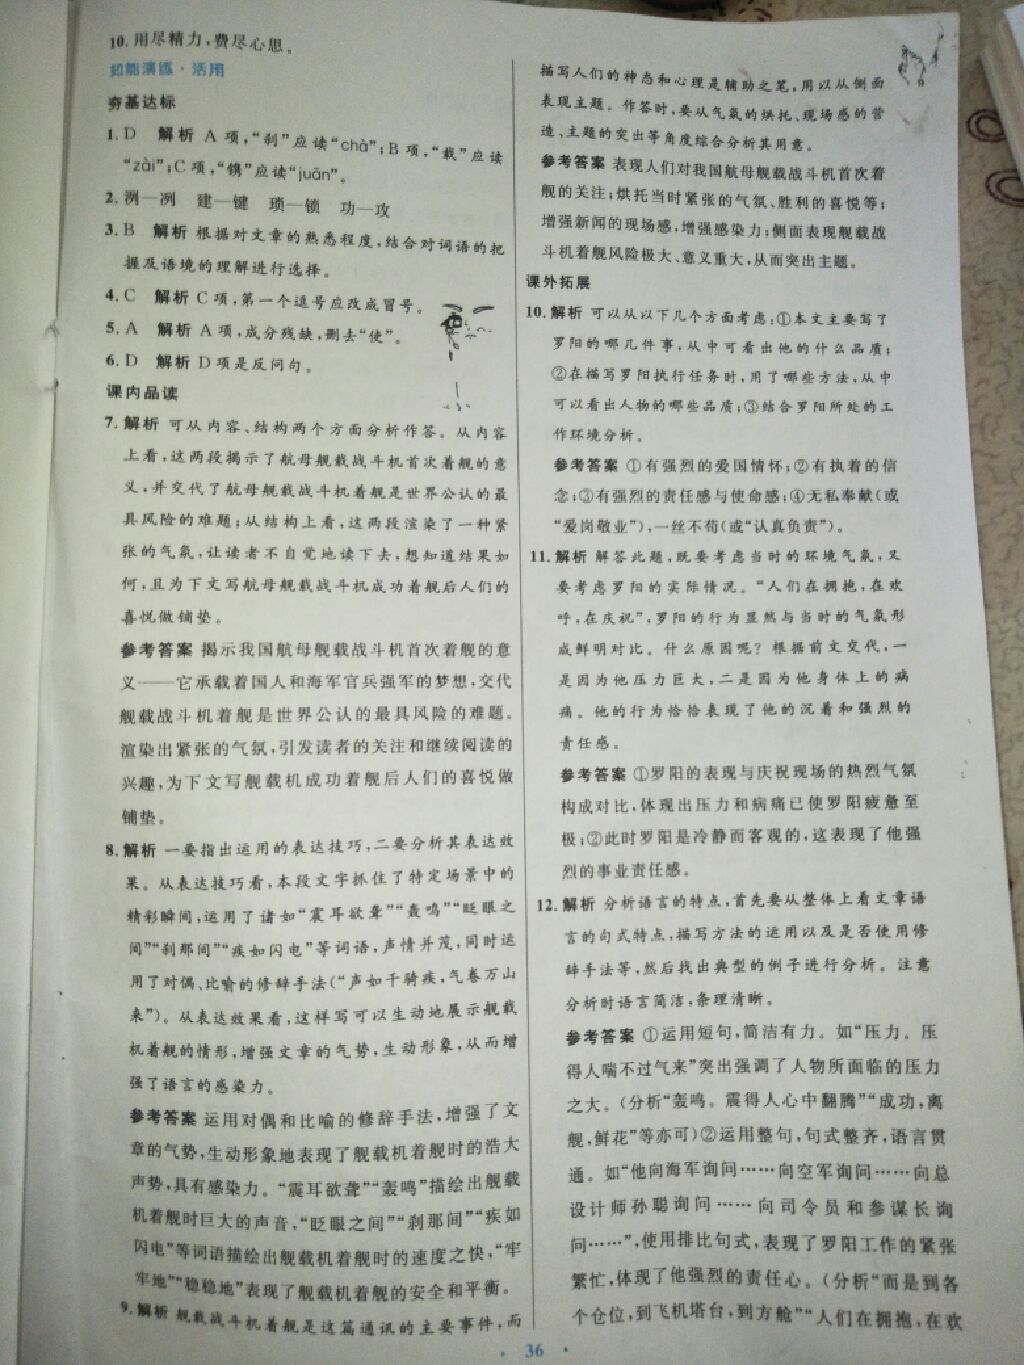 10. 用尽精力,费尽心思。
知能演练·活用
夯基达标
1. D 解析 A项,“刹”应读“chà”;B项,“载”应读
“zài”;C项,“镌”应读“juān”。
2. 洌—冽 建—键 琐—锁 功—攻
3. B 解析 根据对文章的熟悉程度,结合对词语的把
握及语境的理解进行选择。
4. C 解析 C项,第一个逗号应改成冒号。
5. A 解析 A项,成分残缺,删去“使”。
6. D 解析 D项是反问句。
课内品读
7. 解析 可从内容、结构两个方面分析作答。从内容
上看,这两段揭示了航母舰载战斗机首次着舰的意
义,并交代了航母舰载战斗机着舰是世界公认的最
具风险的难题;从结构上看,这两段渲染了一种紧
张的气氛,让读者不自觉地读下去,想知道结果如
何,且为下文写航母舰载战斗机成功着舰后人们的
喜悦做铺垫。
参考答案 揭示我国航母舰载战斗机首次着舰的意
义——它承载着国人和海军官兵强军的梦想,交代
舰载战斗机着舰是世界公认的最具风险的难题。
渲染出紧张的气氛,引发读者的关注和继续阅读的
兴趣,为下文写舰载机成功着舰后人们的喜悦做
铺垫。
8. 解析 一要指出运用的表达技巧,二要分析其表达效
果。从表达技巧看,本段文字抓住了特定场景中的
精彩瞬间,运用了诸如“震耳欲聋”“轰鸣”“眨眼之
间”“刹那间”“疾如闪电”等词语,声情并茂,同时运
用了对偶、比喻的修辞手法(“声如千骑疾,气卷万山
来”)。从表达效果看,这样写可以生动地展示舰载
机着舰的情形,增强文章的气势,生动形象,从而增
强了语言的感染力。
参考答案 运用对偶和比喻的修辞手法,增强了文
章的气势,生动形象地表现了舰载机着舰时的浩大
声势,具有感染力。“震耳欲聋”“轰鸣”描绘出舰载
机着舰时巨大的声音,“眨眼之间”“刹那间”“疾如
闪电”等词语描绘出舰载机着舰时的速度之快,“牢
牢地”“稳稳地”表现了舰载机着舰的安全和平衡。
9. 解析 舰载战斗机着舰是这篇通讯的主要事件,而
描写人们的神态和心理是辅助之笔,用以从侧面
表现主题。作答时,要从气氛的烘托、现场感的营
造、主题的突出等角度综合分析其用意。
参考答案 表现人们对我国航母舰载战斗机首次着
舰的关注;烘托当时紧张的气氛、胜利的喜悦等;
增强新闻的现场感,增强感染力;侧面表现舰载战
斗机着舰风险极大、意义重大,从而突出主题。
课外拓展
10. 解析 可以从以下几个方面考虑:①本文主要写了
罗阳的哪几件事,从中可看出他的什么品质;
②在描写罗阳执行任务时,用了哪些方法,从中
可以看出人物的哪些品质;③结合罗阳所处的工
作环境分析。
参考答案 ①有强烈的爱国情怀;②有执着的信
念;③有强烈的责任感与使命感;④无私奉献(或
“爱岗敬业”),一丝不苟(或“认真负责”)。
11. 解析 解答此题,既要考虑当时的环境气氛,又
要考虑罗阳的实际情况。“人们在拥抱,在欢
呼,在庆祝”,罗阳的行为显然与当时的气氛形
成鲜明对比。什么原因呢?根据前文交代,一
是因为他压力巨大,二是因为他身体上的病
痛。他的行为恰恰表现了他的沉着和强烈的
责任感。
参考答案 ①罗阳的表现与庆祝现场的热烈气氛
构成对比,体现出压力和病痛已使罗阳疲惫至
极;②此时罗阳是冷静而客观的,这表现了他强
烈的事业责任感。
12. 解析 分析语言的特点,首先要从整体上看文章语
言的句式特点,描写方法的运用以及是否使用修
辞手法等,然后找出典型的例子进行分析。注意
分析时语言简洁,条理清晰。
参考答案 ①运用短句,简洁有力。如“压力。压
得人喘不过气来”突出强调了人物所面临的压力
之大。(分析“轰鸣。震得人心中翻腾”“成功,离
舰,鲜花”等亦可)②运用整句,句式整齐,语言贯
通。如“他向海军询问……向空军询问……向总
设计师孙聪询问……向司令员和参谋长询
问……”,使用排比句式,表现了罗阳工作的紧张
繁忙,体现了他强烈的责任心。(分析“而是到各
个仓位,到飞机塔台,到方舱”“人们在拥抱,在欢
36